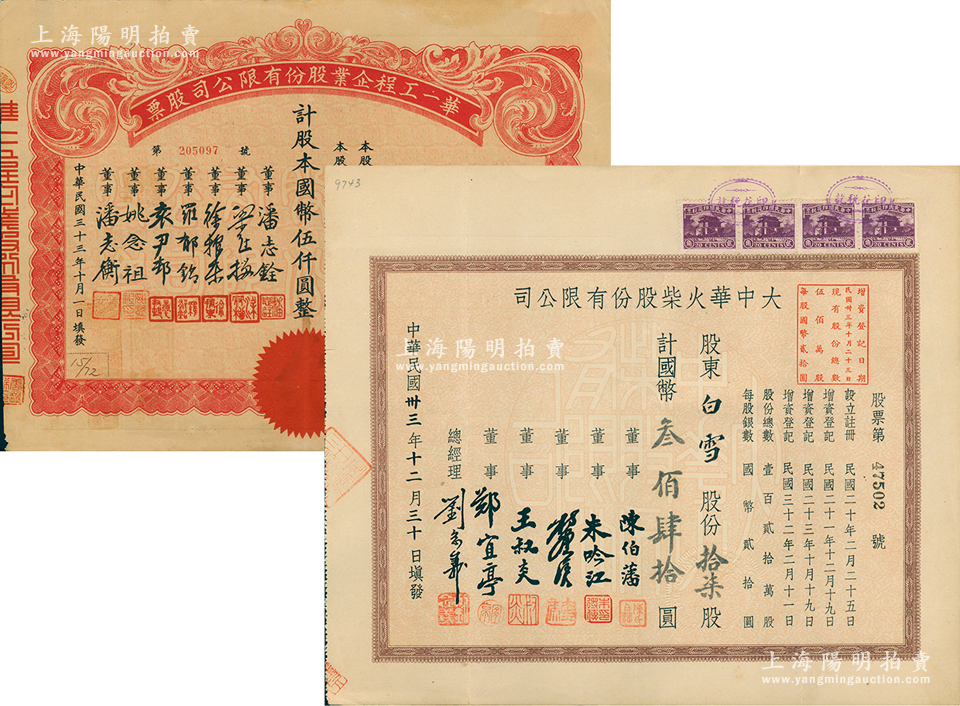 上海陽明拍賣
www.yangmingauction.com
華一工程企業股份有限公司股票
本股
本股
計股本國幣伍仟圓整
第 205097 號
董事 潘志銓
董事
董事 徐
董事 羅郁銘
董事 袁尹邨
董事 姚念祖
董事 潘志衡
中華民國三十三年十月一日填發
15/72
上海陽明拍賣
www.yangmingauction.com
9743
20 CENTS
20 CENTS
20 CENTS
20 CENTS
大中華火柴股份有限公司
增資登記日期
民國卅三年十月二十三日
現有股份總數
伍佰萬股
每股國幣貳拾圓
股票第 47502 號
設立註冊 民國二十年二月二十五日
增資登記 民國二十一年十二月十九日
增資登記 民國二十三年十月十九日
增資登記 民國三十二年二月十一日
股份總數 壹百貳拾萬股
每股銀數 國幣貳拾圓
股東 白雪 股份 拾柒 股
計國幣 叁佰肆拾 圓
董事 陳伯藩
董事 朱吟江
董事
董事 王叔
董事 鄭宜亭
總經理 劉念義
中華民國卅三年十二月三十日填發
上海陽明拍賣
www.yangmingauction.com
上海陽明拍賣
www.yangmingauction.com